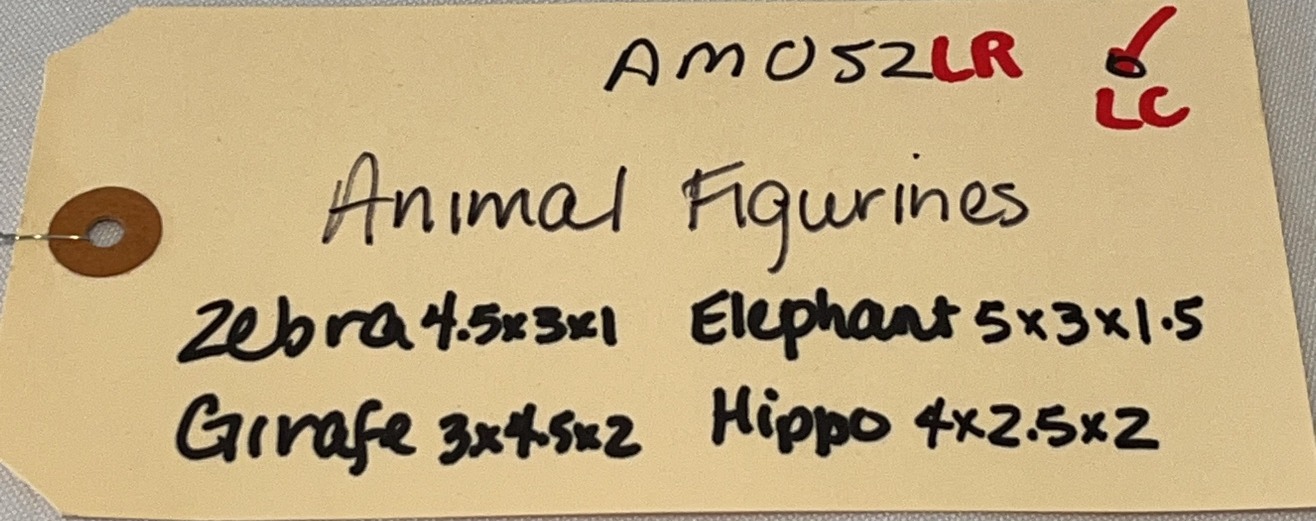 AM052LR
LC
Animal Figurines
Zebra 4.5x3x1 Elephant 5x3x1.5
Girafe 3x4.5x2 Hippo 4x2.5x2